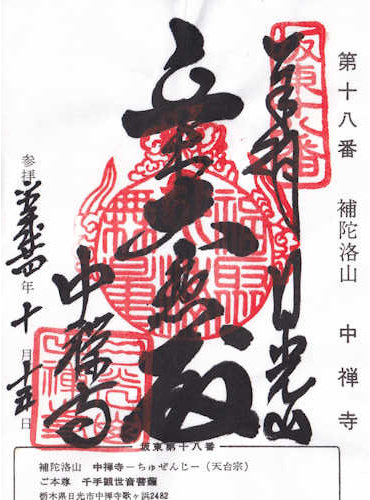 第十八番 補陀洛山 中禅寺
坂東十八番
奉拝 日光山
大悲殿
中禅寺
参拝 年 十月 十五日
坂東第十八番
補陀洛山 中禅寺−ちゅぜんじ−(天台宗)
ご本尊 千手観世音菩薩
栃木県日光市中禅寺歌ヶ浜2482